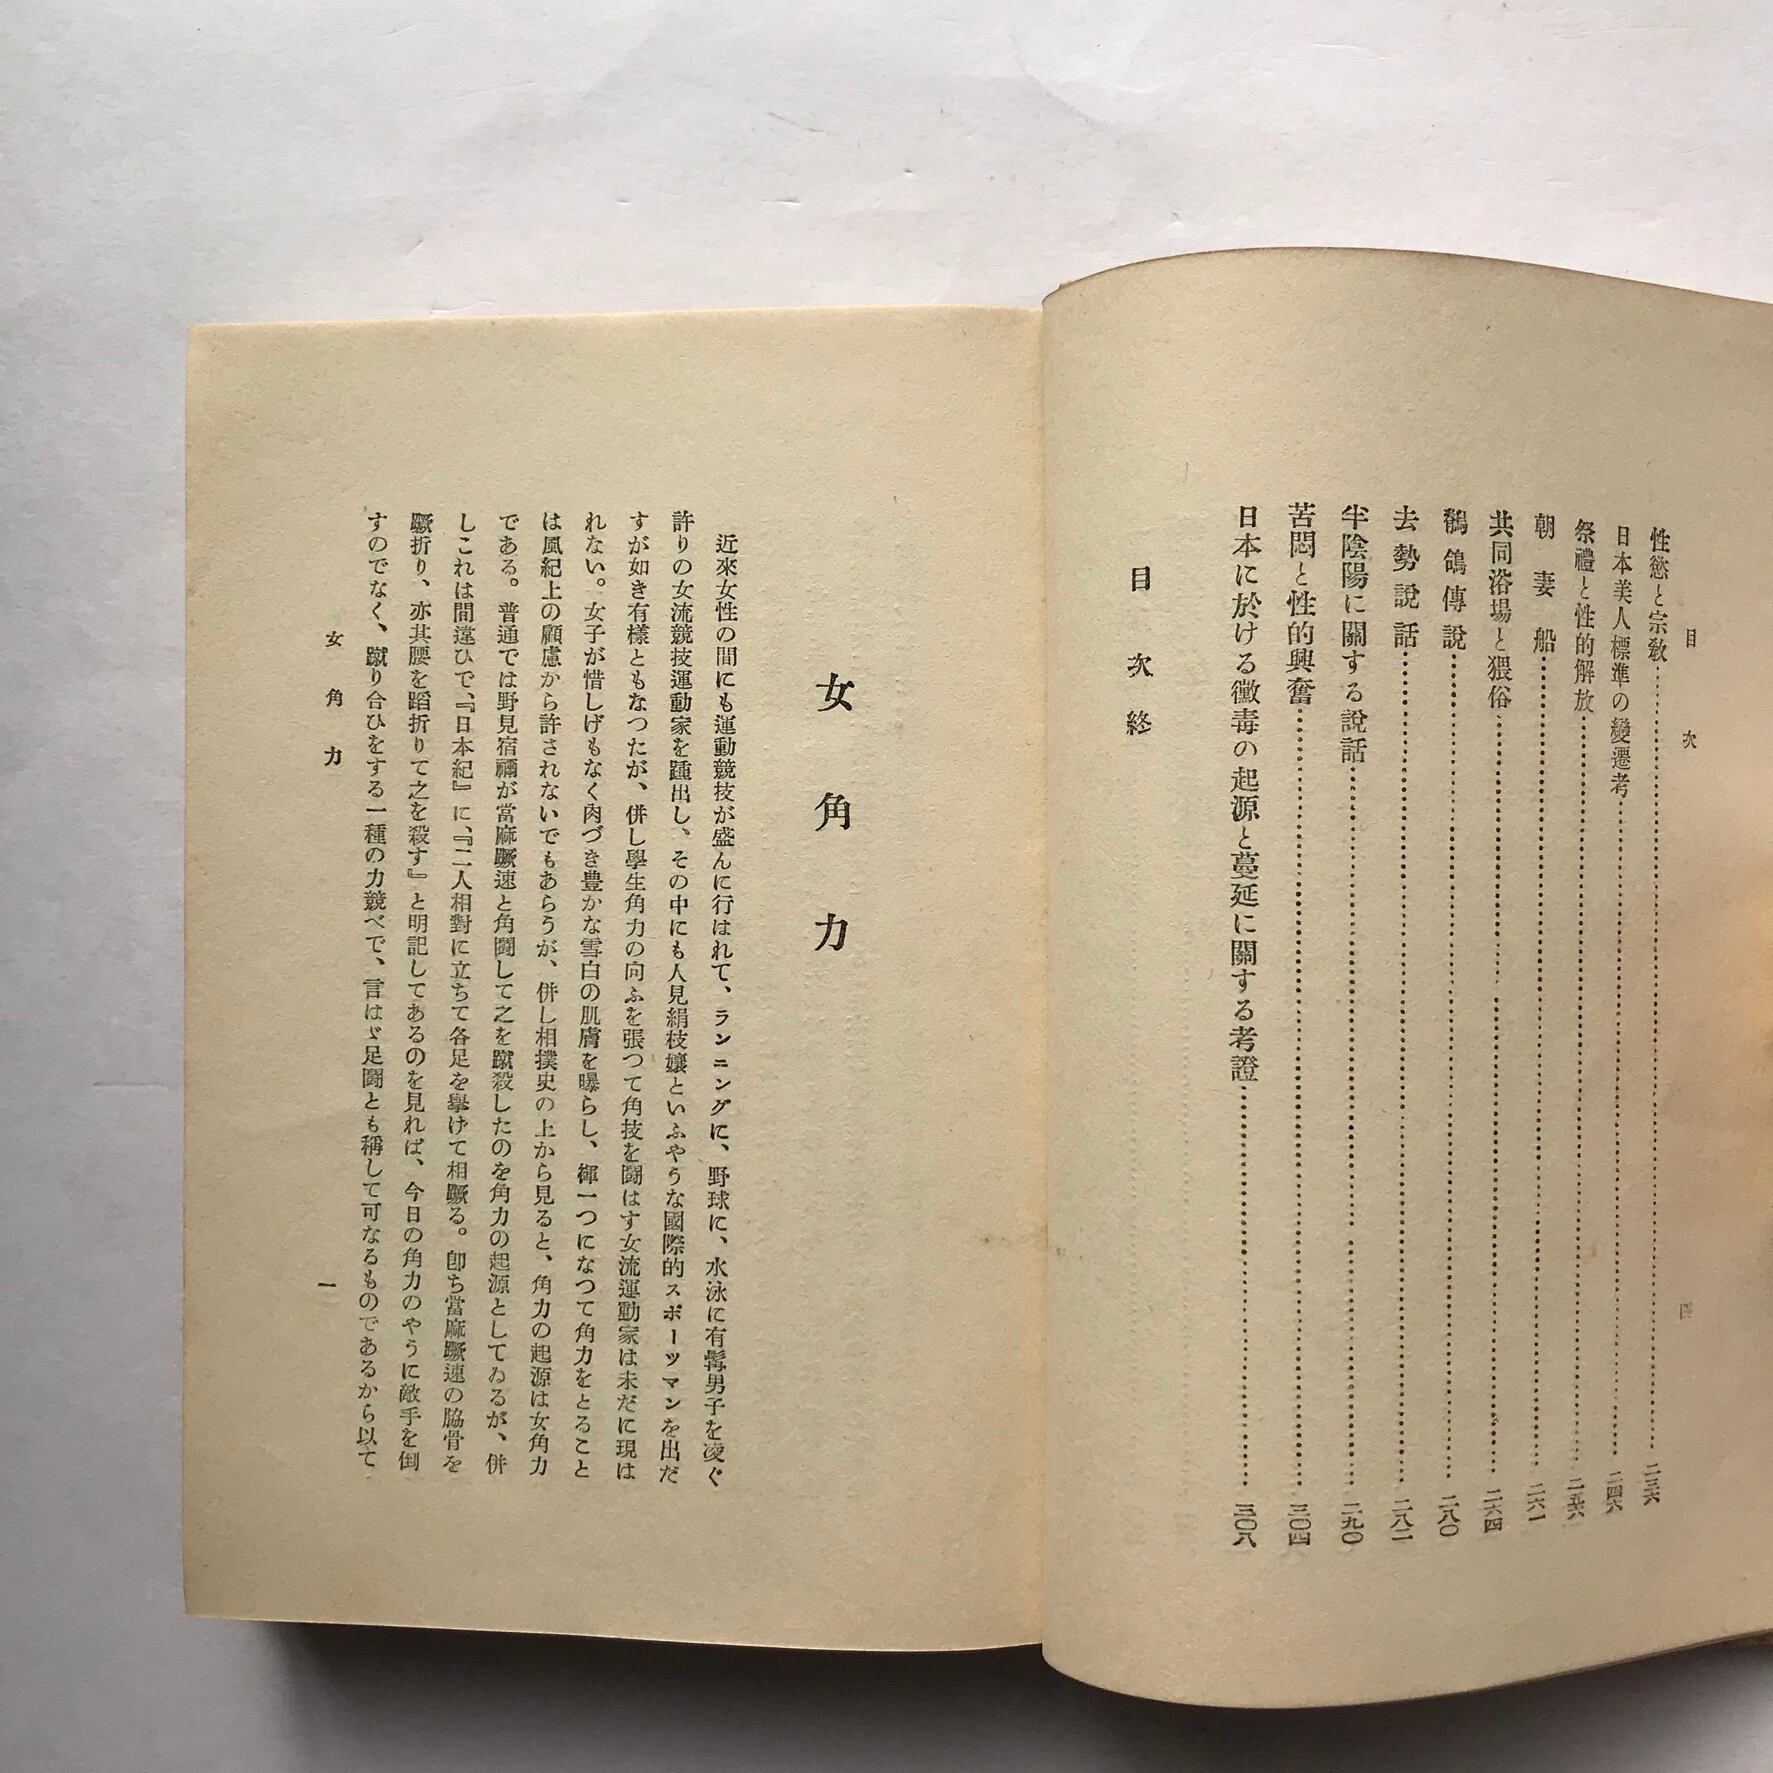 目次
四
性慾と宗敎…………二三六
日本美人標準の變遷考…………二四六
祭禮と性的解放…………二五六
朝妻船…………二六一
共同浴場と猥俗…………二六四
鶺鴒傳說…………二八〇
去勢說話…………二八二
半陰陽に關する說話…………二九〇
苦悶と性的興奮…………三〇四
日本に於ける黴毒の起源と蔓延に關する考證…………三〇八
目次終
女角力
近來女性の間にも運動競技が盛んに行はれて、ランニングに、野球に、水泳に有髯男子を凌ぐ
許りの女流競技運動家を踵出し、その中にも人見絹枝孃といふやうな國際的スポーツマンを出だ
すが如き有樣ともなつたが、併し學生角力の向ふを張つて角技を鬪はす女流運動家は未だに現は
れない。女子が惜しげもなく肉づき豊かな雪白の肌膚を曝らし、褌一つになつて角力をとること
は風紀上の顧慮から許されないでもあらうが、併し相撲史の上から見ると、角力の起源は女角力
である。普通では野見宿禰が當麻蹶速と角鬪して之を蹴殺したのを角力の起源としてゐるが、併
しこれは間違ひで、『日本紀』に、『二人相對に立ちて各足を擧げて相蹶る。卽ち當麻蹶速の脇骨を
蹶折り、亦其腰を蹈折りて之を殺す』と明記してあるのを見れば、今日の角力のやうに敵手を倒
すのでなく、蹴り合ひをする一種の力競べで、言はゞ足鬪とも稱して可なるものであるから以て
女角力
一